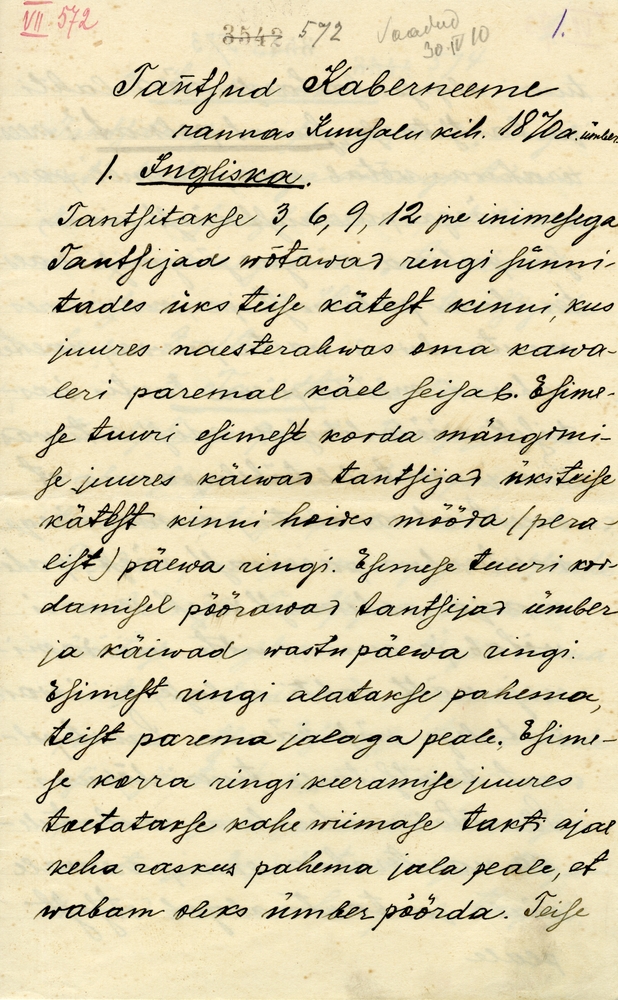 VII 572
3542 572 Vaadud 30.IV 10 1.
Tantsud Kaberneeme
rannas Kuusalu kih. 1870 a. ümber
1. Ingliska.
Tantsitakse 3, 6, 9, 12 jne inimesega
Tantsijad wõtawad ringi sünni-
tades üksteise kätest kinni, kus
juures naesterahwas oma kawa-
leri paremal käel seisab. Esime-
se tuuri esimest korda mängimi-
se juures käiwad tantsijad üksteise
kätest kinni hoides mööda (pera-
list) päewa ringi. Esimese tuuri kor-
damisel pöörawad tantsijad ümber
ja käiwad wastu päewa ringi.
Esimest ringi alatakse pahema,
teist parema jalaga peale. Esime-
se korra ringi keeramise juures
toetatakse kahe wiimase takti ajal
keha raskus pahema jala peale, et
wabam oleks ümber pöörda. Teise